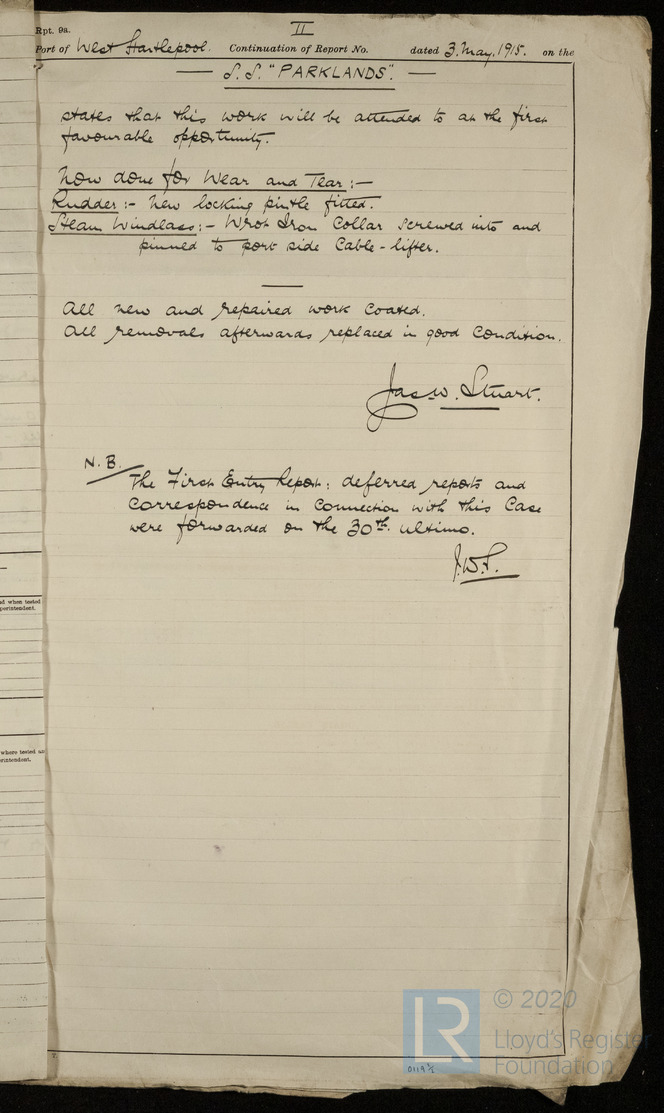 II
Rpt. 9a.
Port of West Hartlepool. Continuation of Report No. dated 3. May, 1915. on the
S.S. "PARKLANDS".
states that this work will be attended to at the first
favourable opportunity.
Now done for Wear and Tear:-
Rudder:- New locking pintle fitted.
Steam Windlass:- Wrot Iron Collar screwed into and
pinned to port side Cable-lifter.
All new and repaired work coated.
All removals afterwards replaced in good condition.
Jas. W. Stuart.
N.B.
The First Entry Report: deferred reports and
correspondence in connection with this Case
were forwarded on the 30th. ultimo.
J.W.S.
ed when tested
perintendent.
where tested an
rintendent.
LR © 2020
Lloyd's Register
Foundation
0119½